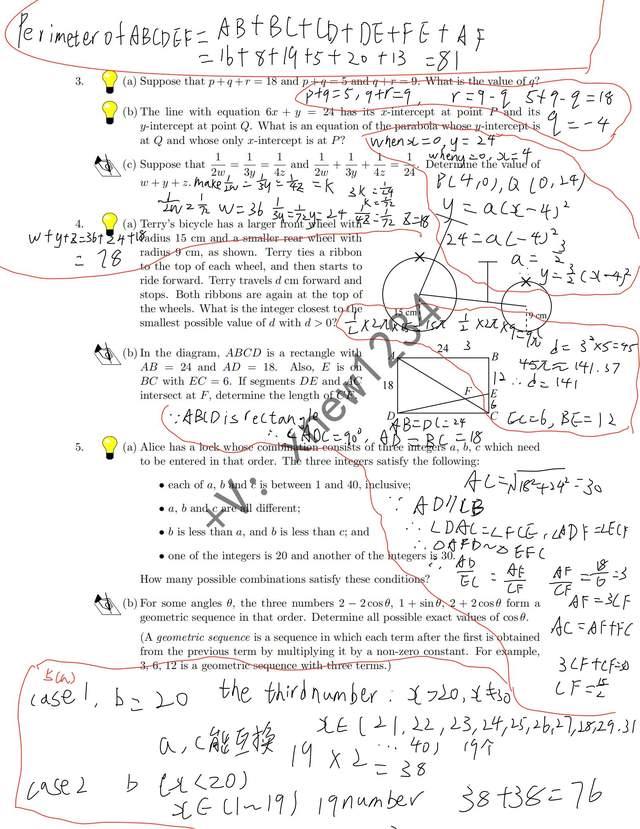 Perimeter of ABCDEF = AB+BC+CD+DE+FE+AF
= 16+8+19+5+20+13 = 81
3. (a) Suppose that p + q + r = 18 and p + q = 5 and q + r = 9. What is the value of q?
p+q=5, q+r=9, r=9-q 5+9-q=18
q=-4
(b) The line with equation 6x + y = 24 has its x-intercept at point P and its
y-intercept at point Q. What is an equation of the parabola whose y-intercept is
at Q and whose only x-intercept is at P?
when x=0, y=24
when y=0, x=4
P(4,0), Q(0,24)
y=a(x-4)²
24=a(-4)²
a=3/2
∴ y=3/2(x-4)²
(c) Suppose that 1/2w = 1/3y = 1/4z and 1/2w + 1/3y + 1/4z = 1/24. Determine the value of
w + y + z.
make 1/2w = 1/3y = 1/4z = k
3k=1/24
k=1/72
1/2w=1/72 w=36 1/3y=1/72 y=24 1/4z=1/72 z=18
w+y+z=36+24+18
= 78
4. (a) Terry's bicycle has a larger front wheel with
radius 15 cm and a smaller rear wheel with
radius 9 cm, as shown. Terry ties a ribbon
to the top of each wheel, and then starts to
ride forward. Terry travels d cm forward and
stops. Both ribbons are again at the top of
the wheels. What is the integer closest to the
smallest possible value of d with d > 0?
15 cm
9 cm
d=3²×5=45
45π≈141.37
∴ d=141
(b) In the diagram, ABCD is a rectangle with
AB = 24 and AD = 18. Also, E is on
BC with EC = 6. If segments DE and AC
intersect at F, determine the length of CF.
24
A
B
18
12
F
E
6
D
C
∵ABCD is rectangle
∴∠ADC=90°, AD=BC=18
AB=DC=24
EC=6, BE=12
AC=√18²+24²=30
∵ AD//CB
∴ ∠DAC=∠FCE, ∠ADF=∠ECF
∴ △AFD∽△EFC
∴ AD/EC = AF/CF AF/CF=18/6=3
AF=3CF
AC=AF+FC
3CF+CF=30
CF=15/2
5. (a) Alice has a lock whose combination consists of three integers a, b, c which need
to be entered in that order. The three integers satisfy the following:
• each of a, b and c is between 1 and 40, inclusive;
• a, b and c are all different;
• b is less than a, and b is less than c; and
• one of the integers is 20 and another of the integers is 30.
How many possible combinations satisfy these conditions?
(b) For some angles θ, the three numbers 2 − 2 cos θ, 1 + sin θ, 2 + 2 cos θ form a
geometric sequence in that order. Determine all possible exact values of cos θ.
(A geometric sequence is a sequence in which each term after the first is obtained
from the previous term by multiplying it by a non-zero constant. For example,
3, 6, 12 is a geometric sequence with three terms.)
5(a)
case 1, b=20 the third number: x>20, x≠30
x∈(21,22,23,24,25,26,27,28,29.31
... 40) 19个
a,c能互换 19×2
=38
case 2 b (x<20)
x∈(1~19) 19 number 38+38=76
+V: xnew1234